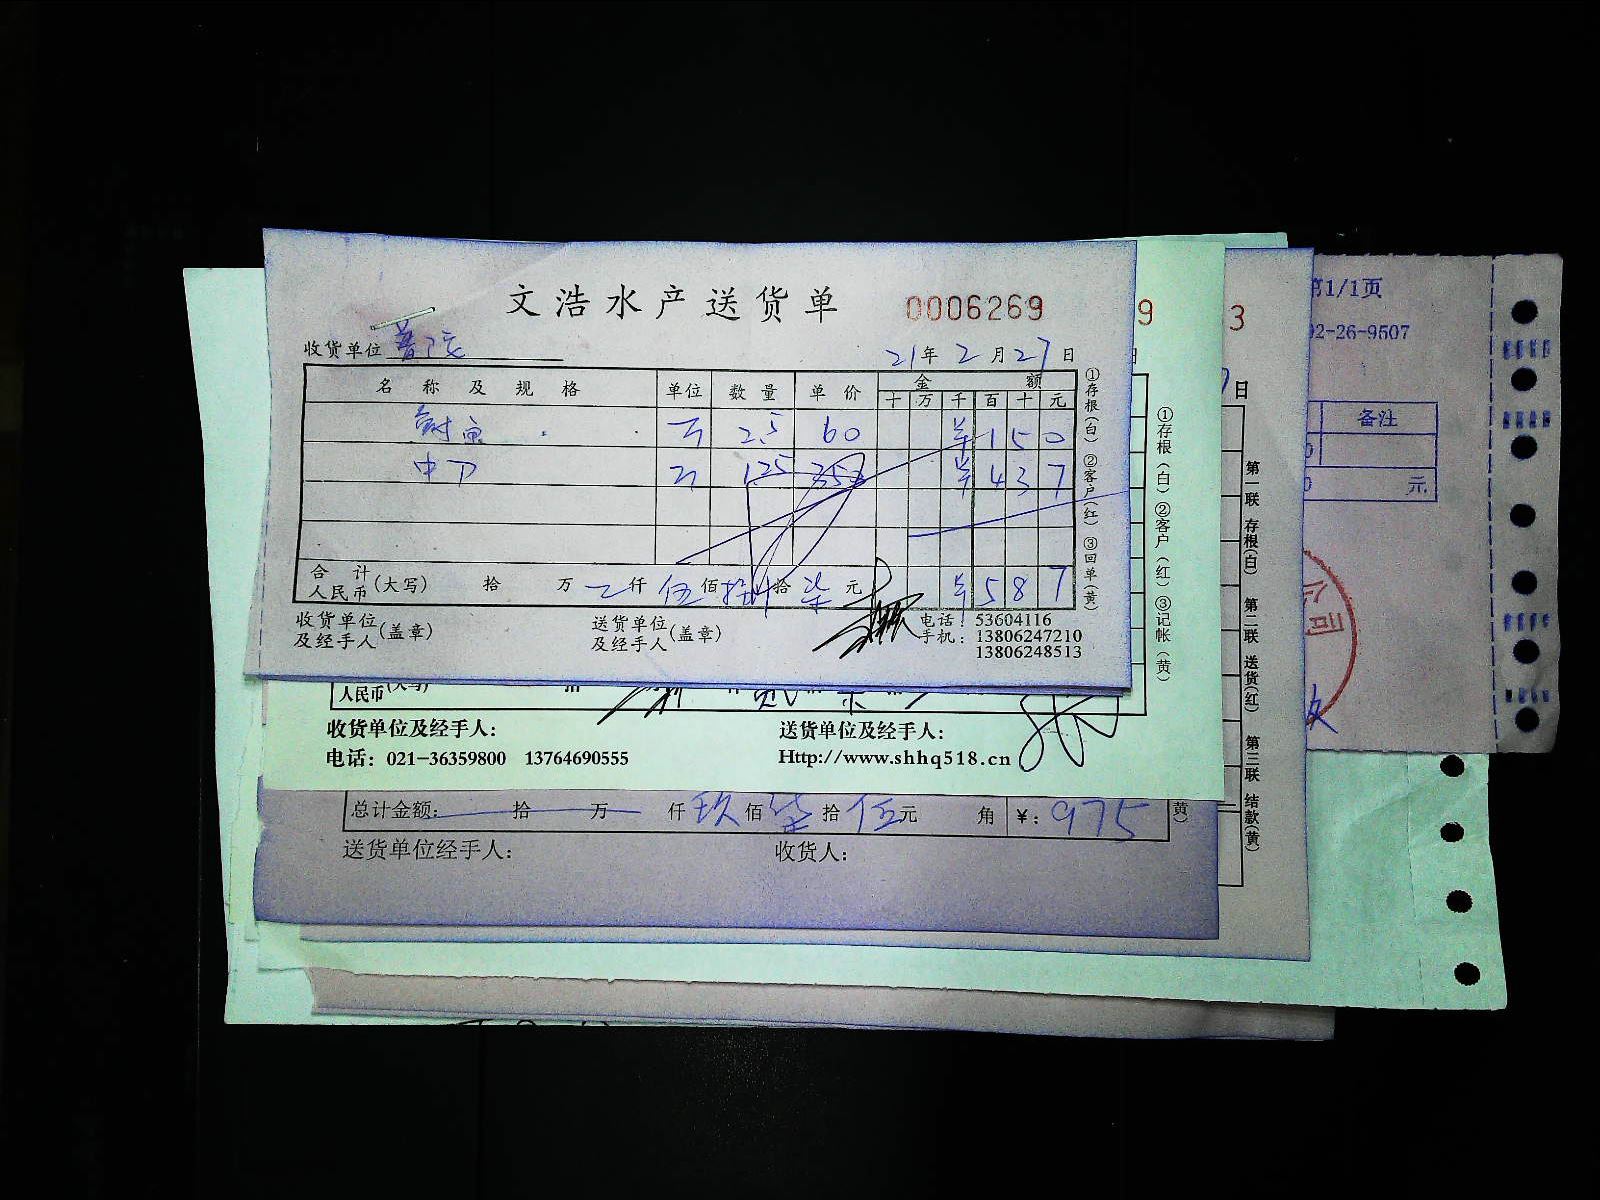 文浩水产送货单 0006269
收货单位
21年2月27日
名称及规格 单位 数量 单价 金额
十 万 千 百 十 元
2.5 60 ¥ 1 5 0
中 12.5 ¥ 4 3 7
合计
人民币(大写) 拾 万 仟 伍佰 捌拾 柒元 ¥ 5 8 7
收货单位
及经手人(盖章)
送货单位
及经手人(盖章)
电话：53604116
手机：13806247210
13806248513
①存根(白) ②客户(红) ③回单(黄)
9
①存根(白) ②客户(红) ③记帐(黄)
人民币(大写)
收货单位及经手人：
送货单位及经手人：
电话：021-36359800 13764690555
Http://www.shhq518.cn
总计金额： 拾 万 仟 玖佰 柒拾 伍元 角 ¥：975
黄)
送货单位经手人：
收货人：
3
日
第一联 存根(白) 第二联 送货(红) 第三联 结款(黄)
第1/1页
02-26-9507
备注
元
公司